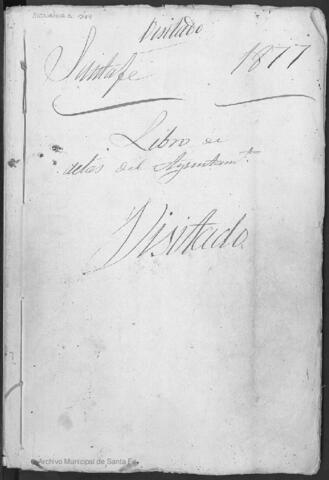 Visitado
Santafe 1877
Libro de
actas del Ayuntamto.
Visitado
© Archivo Municipal de Santa Fe